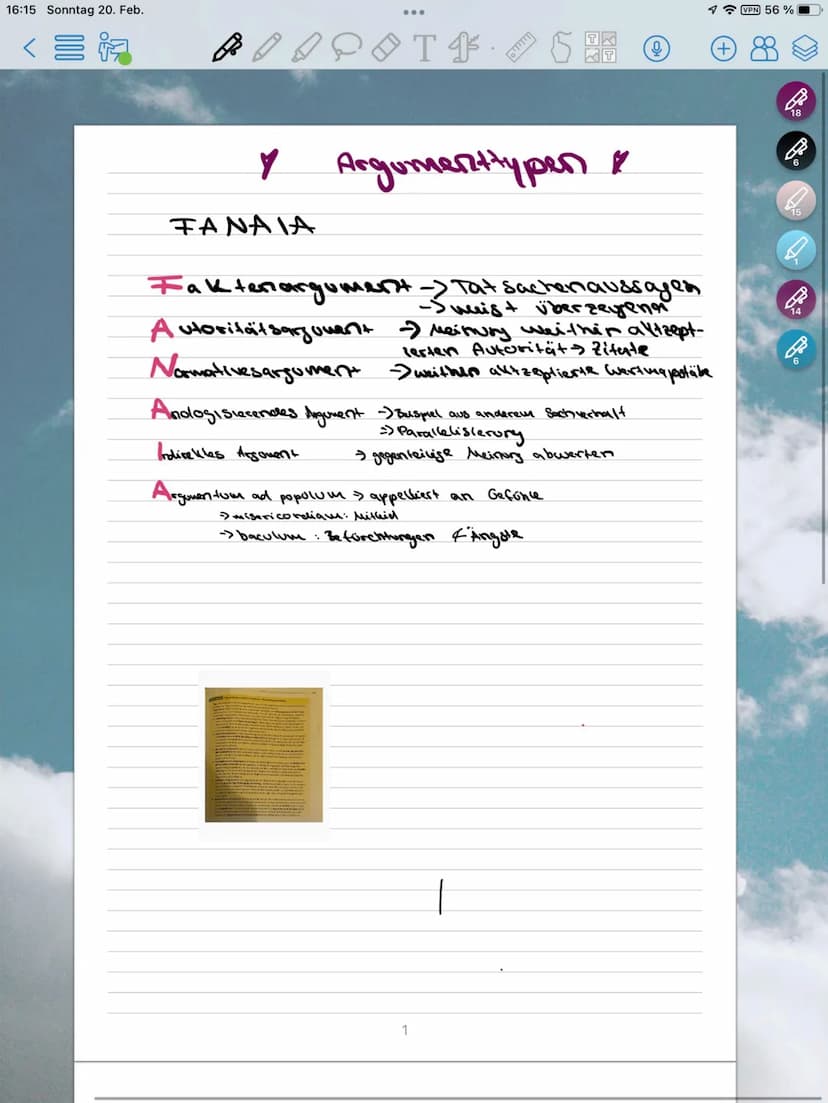 16:15 Sonntag 20. Feb.
VPN 56 %
T
18
6
15
1
14
6
Argumenttypen
FANAIA
Faktenargument -> Tatsachenaussagen
-> meist überzeugend
Autoritätsargument -> Meinung weithin aktzept-
ierten Autorität -> Zitate
Normatives argument -> weithin aktzeptierte Wertmaßstäbe
Analogisierendes Argument -> Beispiel aus anderem Sachverhalt
=> Parallelisierung
Indirektes Argument -> gegenteilige Meinung abwerten
Argumentum ad populum -> appelliert an Gefühle
-> misericordiam: Mitleid
-> baculum : Befürchtungen & Ängste
1